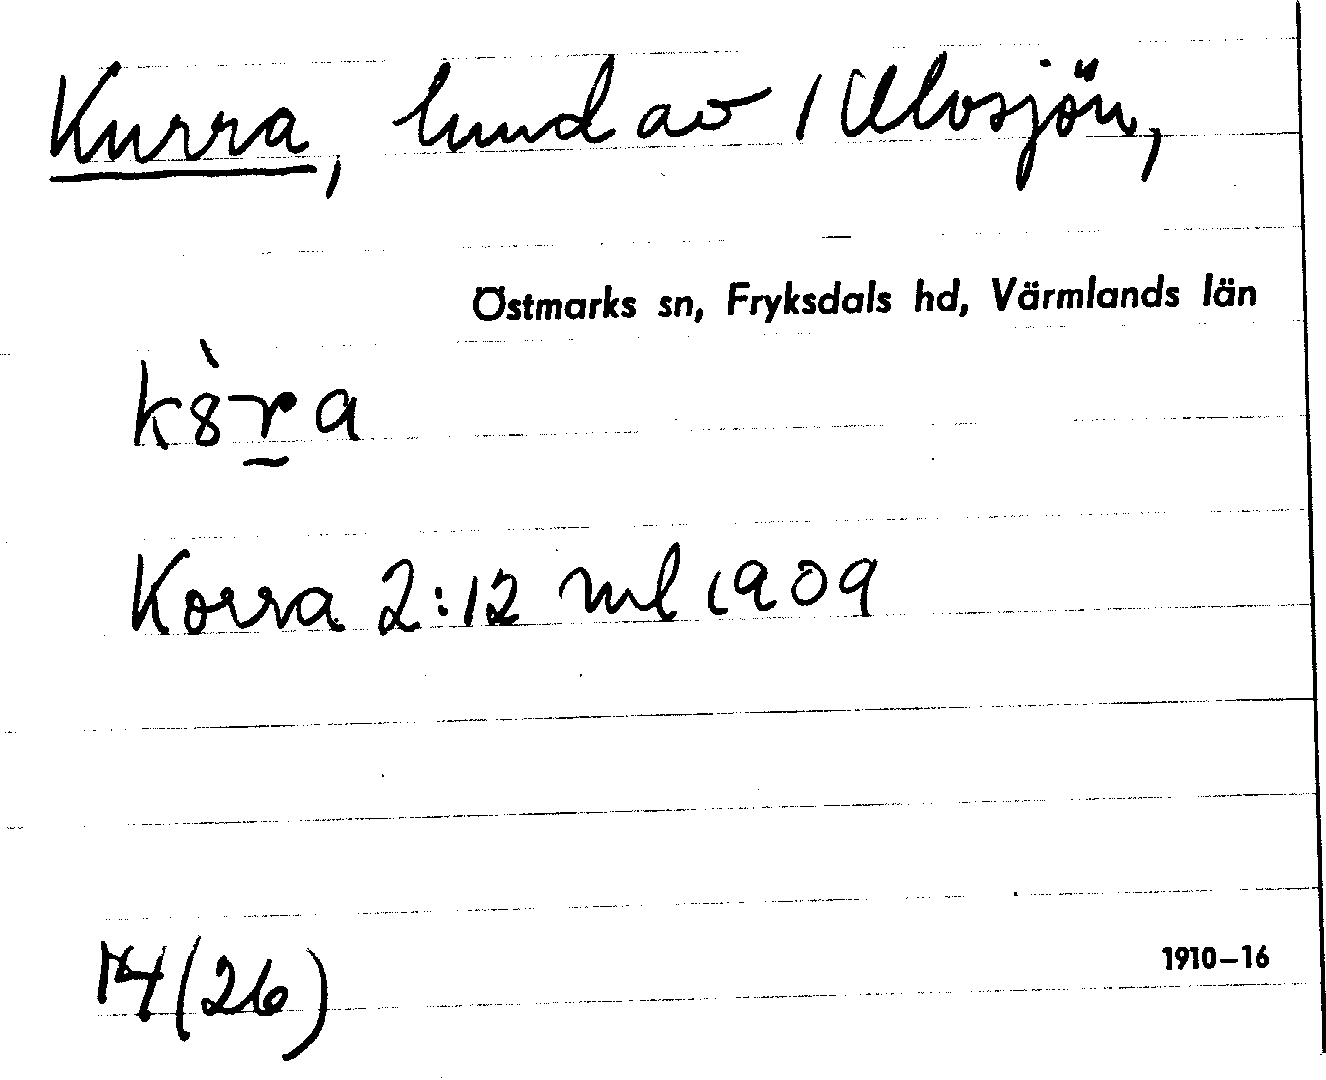 Kurra, hmd av 1 Ulvsjön,
Östmarks sn, Fryksdals hd, Värmlands län
k8̀r̲a
Korra 2:12 ml 1909
1910–16
(26)